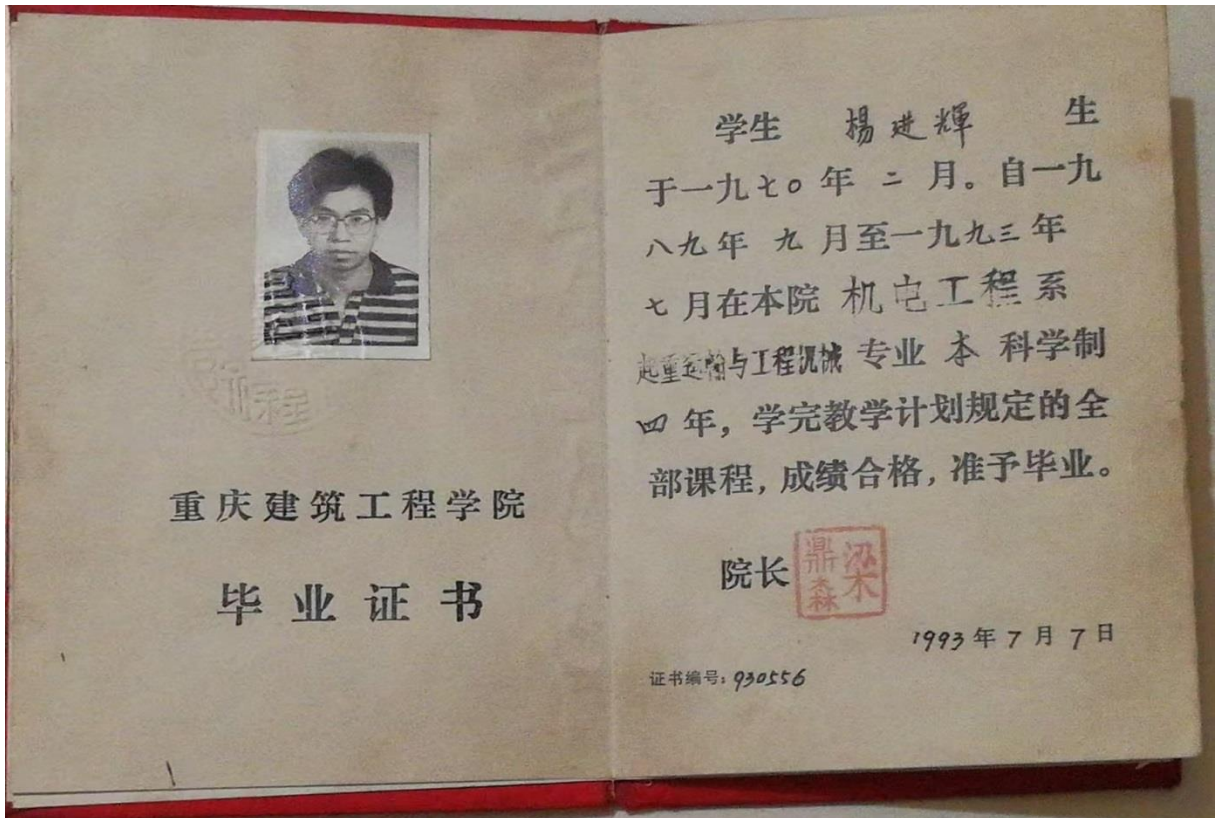 重庆建筑工程学院
毕业证书
学生 楊进輝 生
于一九七〇年 二 月。自一九
八九年 九 月至一九九三年
七 月在本院 机电工程 系
起重运输与工程机械 专业 本 科学制
四 年，学完教学计划规定的全
部课程，成绩合格，准予毕业。
院长 梁鼎森
1993年7月7日
证书编号：930556